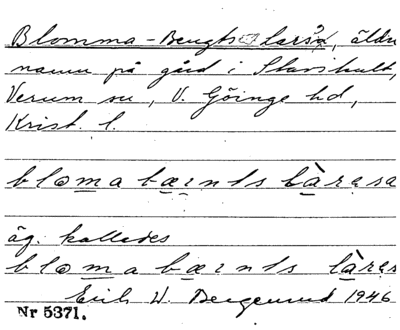 Blomma-Bengts Lars's, äldre
namn på gård i Slavshult,
Verum sn, V. Göinge hd,
Krist. l.
bloma bærnts làrəsa
äg. kallades
bloma bærnts làrəs
Erik W. 1946
Nr 5371.